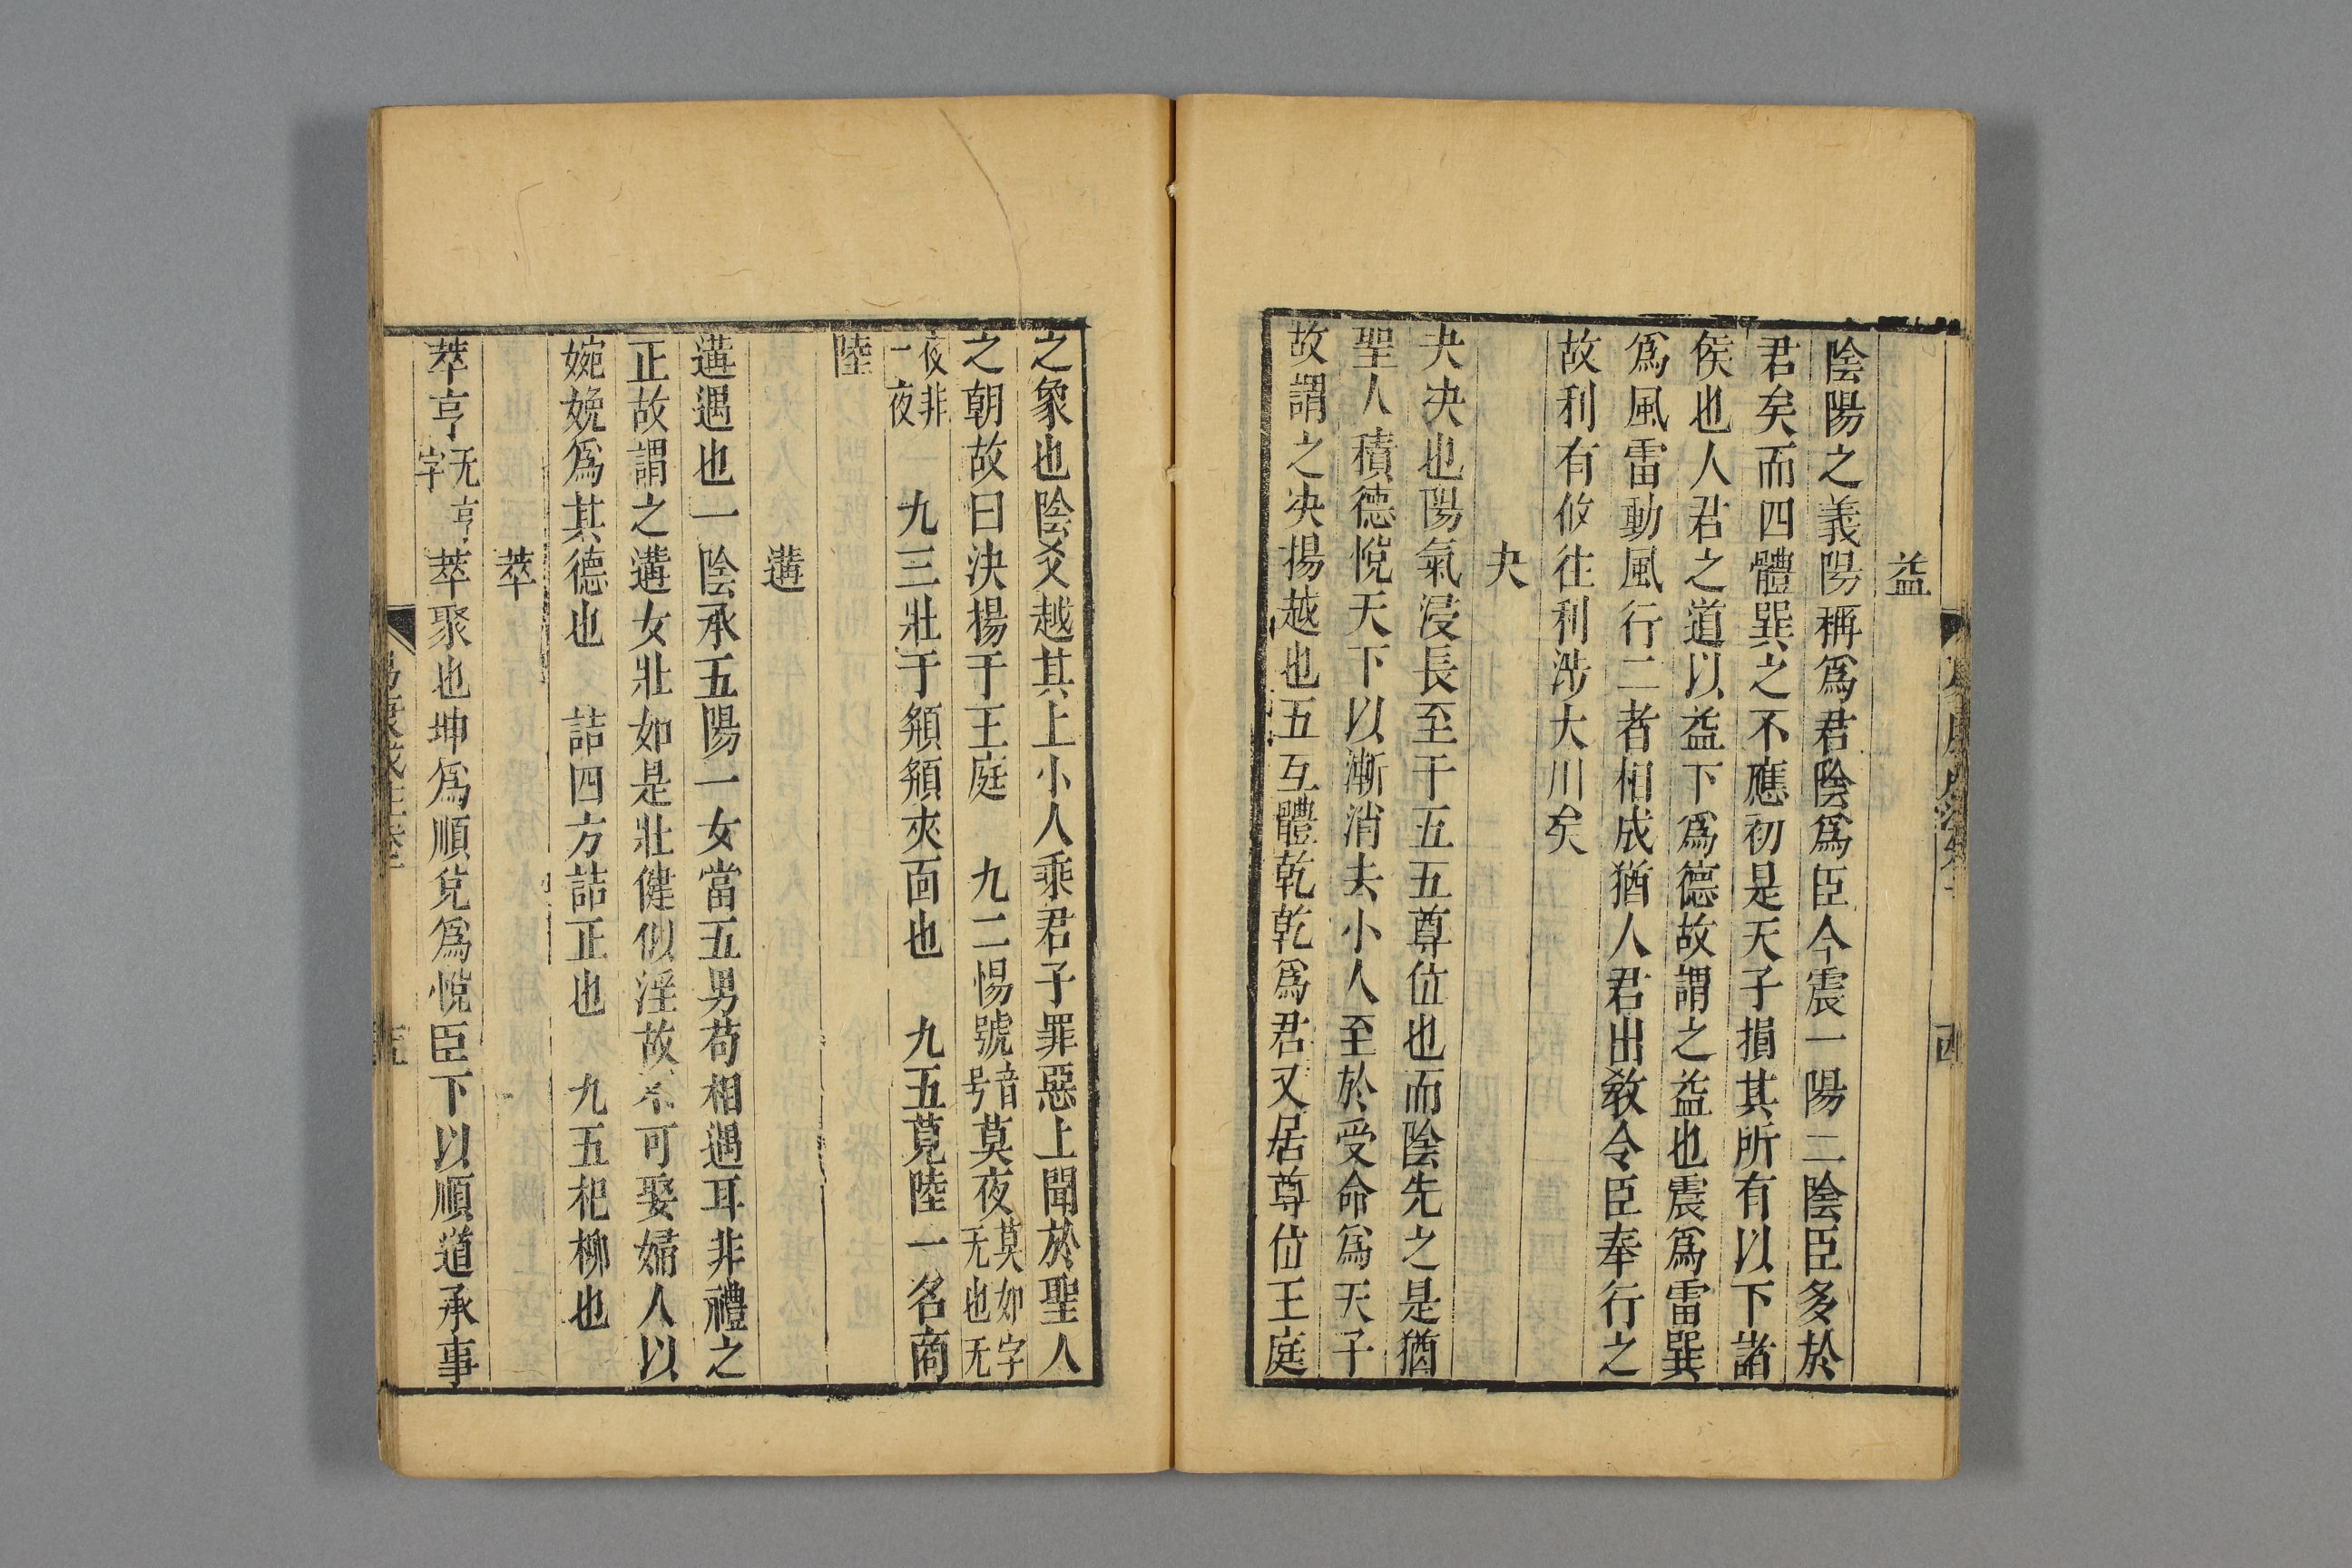 益
陰陽之義陽稱爲君陰爲臣今震一陽二陰臣多於
君矣而四體巽之不應初是天子損其所有以下諸
侯也人君之道以益下爲德故謂之益也震爲雷巽
爲風雷動風行二者相成猶人君出教令臣奉行之
故利有攸往利涉大川矣
夬
夬決也陽氣浸長至于五五尊位也而陰先之是猶
聖人積德恱天下以漸消去小人至於受命爲天子
故謂之決揚越也五互體乾乾爲君又居尊位王庭
之象也陰爻越其上小人乘君子罪惡上聞於聖人
之朝故曰決揚于王庭　九二惕號音号莫夜莫如字无也无
夜非一夜　九三壯于頯頯夾面也　九五莧陸一名商
陸
遘
遘遇也一陰承五陽一女當五男苟相遇耳非禮之
正故謂之遘女壯如是壯健似淫故不可娶婦人以
婉娩爲其德也　詰四方詰正也　九五杞柳也
萃
萃亨无亨字萃聚也坤爲順兌爲恱臣下以順道承事